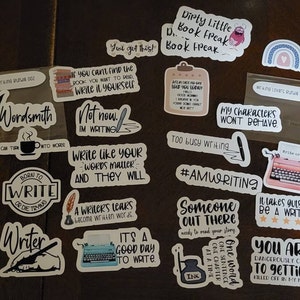 You got this!
Dirty Little
Book Freak
Book Freak
IF YOU CAN'T FIND THE
BOOK YOU WANT TO READ,
WRITE IT YOURSELF
Wordsmith
Not now,
I'M WRITING
MY CHARACTERS
WON'T BEHAVE
I CAN TURN
INTO WORDS
Too busy writing
WRITE LIKE YOUR
WORDS MATTER
AND THEY WILL
BORN TO
WRITE
#AMWRITING
IT TAKES GUTS
BE A WRITER
A WRITER'S TEARS
become written words
Someone
OUT THERE
needs to read your story
Writer
IT'S A
GOOD DAY
TO WRITE
INK
One word
YOU ARE
DANGEROUSLY C
TO GETTIN
KILLED OFF IN MY